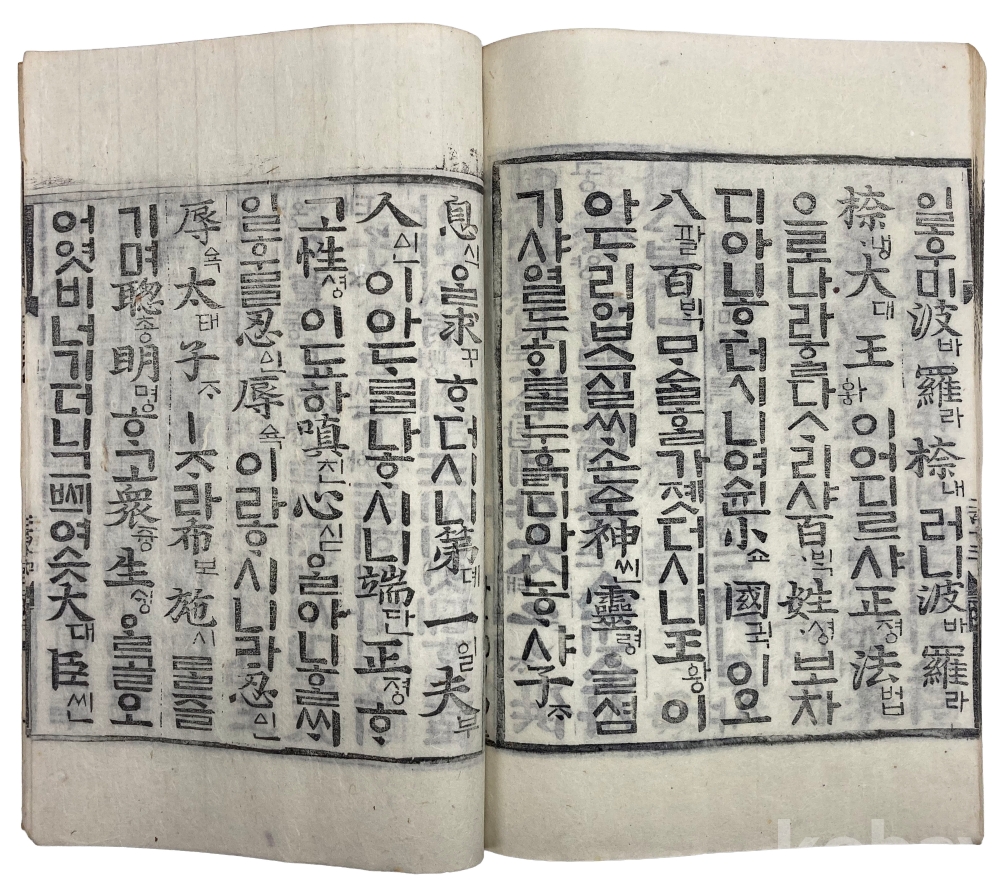 일후미波바羅라㮈내러니波바羅라
㮈냉大대王왕이어디르샤正졍法법
으로나라ᄒᆞᆯ다ᄉᆞ리샤百ᄇᆡᆨ姓셩보차
디아니ᄒᆞ더시니여쉰小쇼國귁이오
八팔百ᄇᆡᆨᄆᆞᅀᆞᆯᄒᆞᆯ가졧더시니王왕이
아ᄃᆞ리업스실ᄊᆡ손ᅀᅩ神씬靈령을셤
기샤열두ᄒᆡᄅᆞᆯ누흙디아니ᄒᆞ샤子ᄌᆞ
息식을求꾸ᄒᆞ더시니第뎨一일夫부
人ᅀᅵᆫ이아ᄃᆞᄅᆞᆯ나ᄒᆞ시니端단正졍ᄒᆞ
고性셩이됴하嗔진心심을아니ᄒᆞᆯᄊᆡ
일후믈忍ᅀᅵᆫ辱욕이라ᄒᆞ시니라忍ᅀᅵᆫ
辱욕太태子ᄌᆞㅣᄌᆞ라布보施시ᄅᆞᆯ즐
기며聰총明명ᄒᆞ고衆즁生ᄉᆡᆼᄋᆞᆯ골오
어엿비너기더니그ᄢᅴ여슷大대臣씬